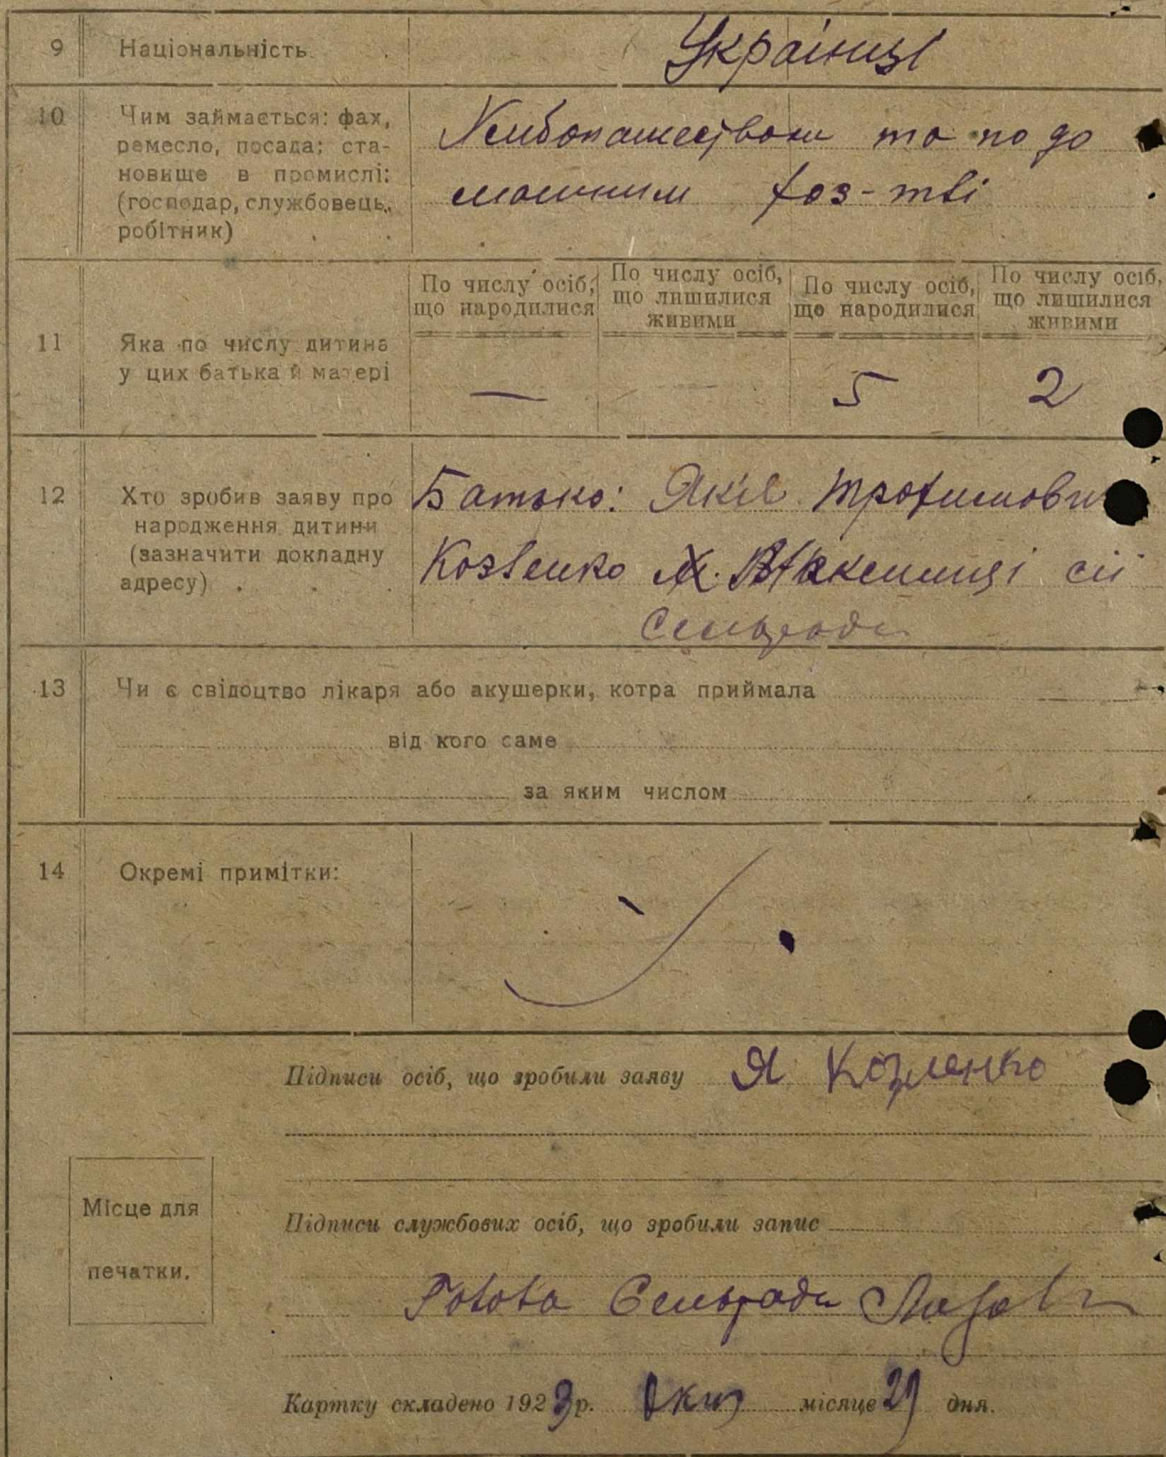 9 Національність Українці
10 Чим займається: фах, ремесло, посада; становище в промислі: (господар, службовець, робітник)
Хлібопашеством та по до
машним хоз-тві
11 Яка по числу дитина у цих батька й матері
По числу осіб, що народилися
По числу осіб, що лишилися живими
По числу осіб, що народилися
По числу осіб, що лишилися живими
— 5 2
12 Хто зробив заяву про народження дитини (зазначити докладну адресу)
Батько: Яків Трофимович
Козленко х. сії
Сельради
13 Чи є свідоцтво лікаря або акушерки, котра приймала
від кого саме
за яким числом
14 Окремі примітки:
Підписи осіб, що зробили заяву Я Козленко
Місце для
печатки.
Підписи службових осіб, що зробили запис
Голова Сельради
Картку складено 1923 р. місяце 29 дня.